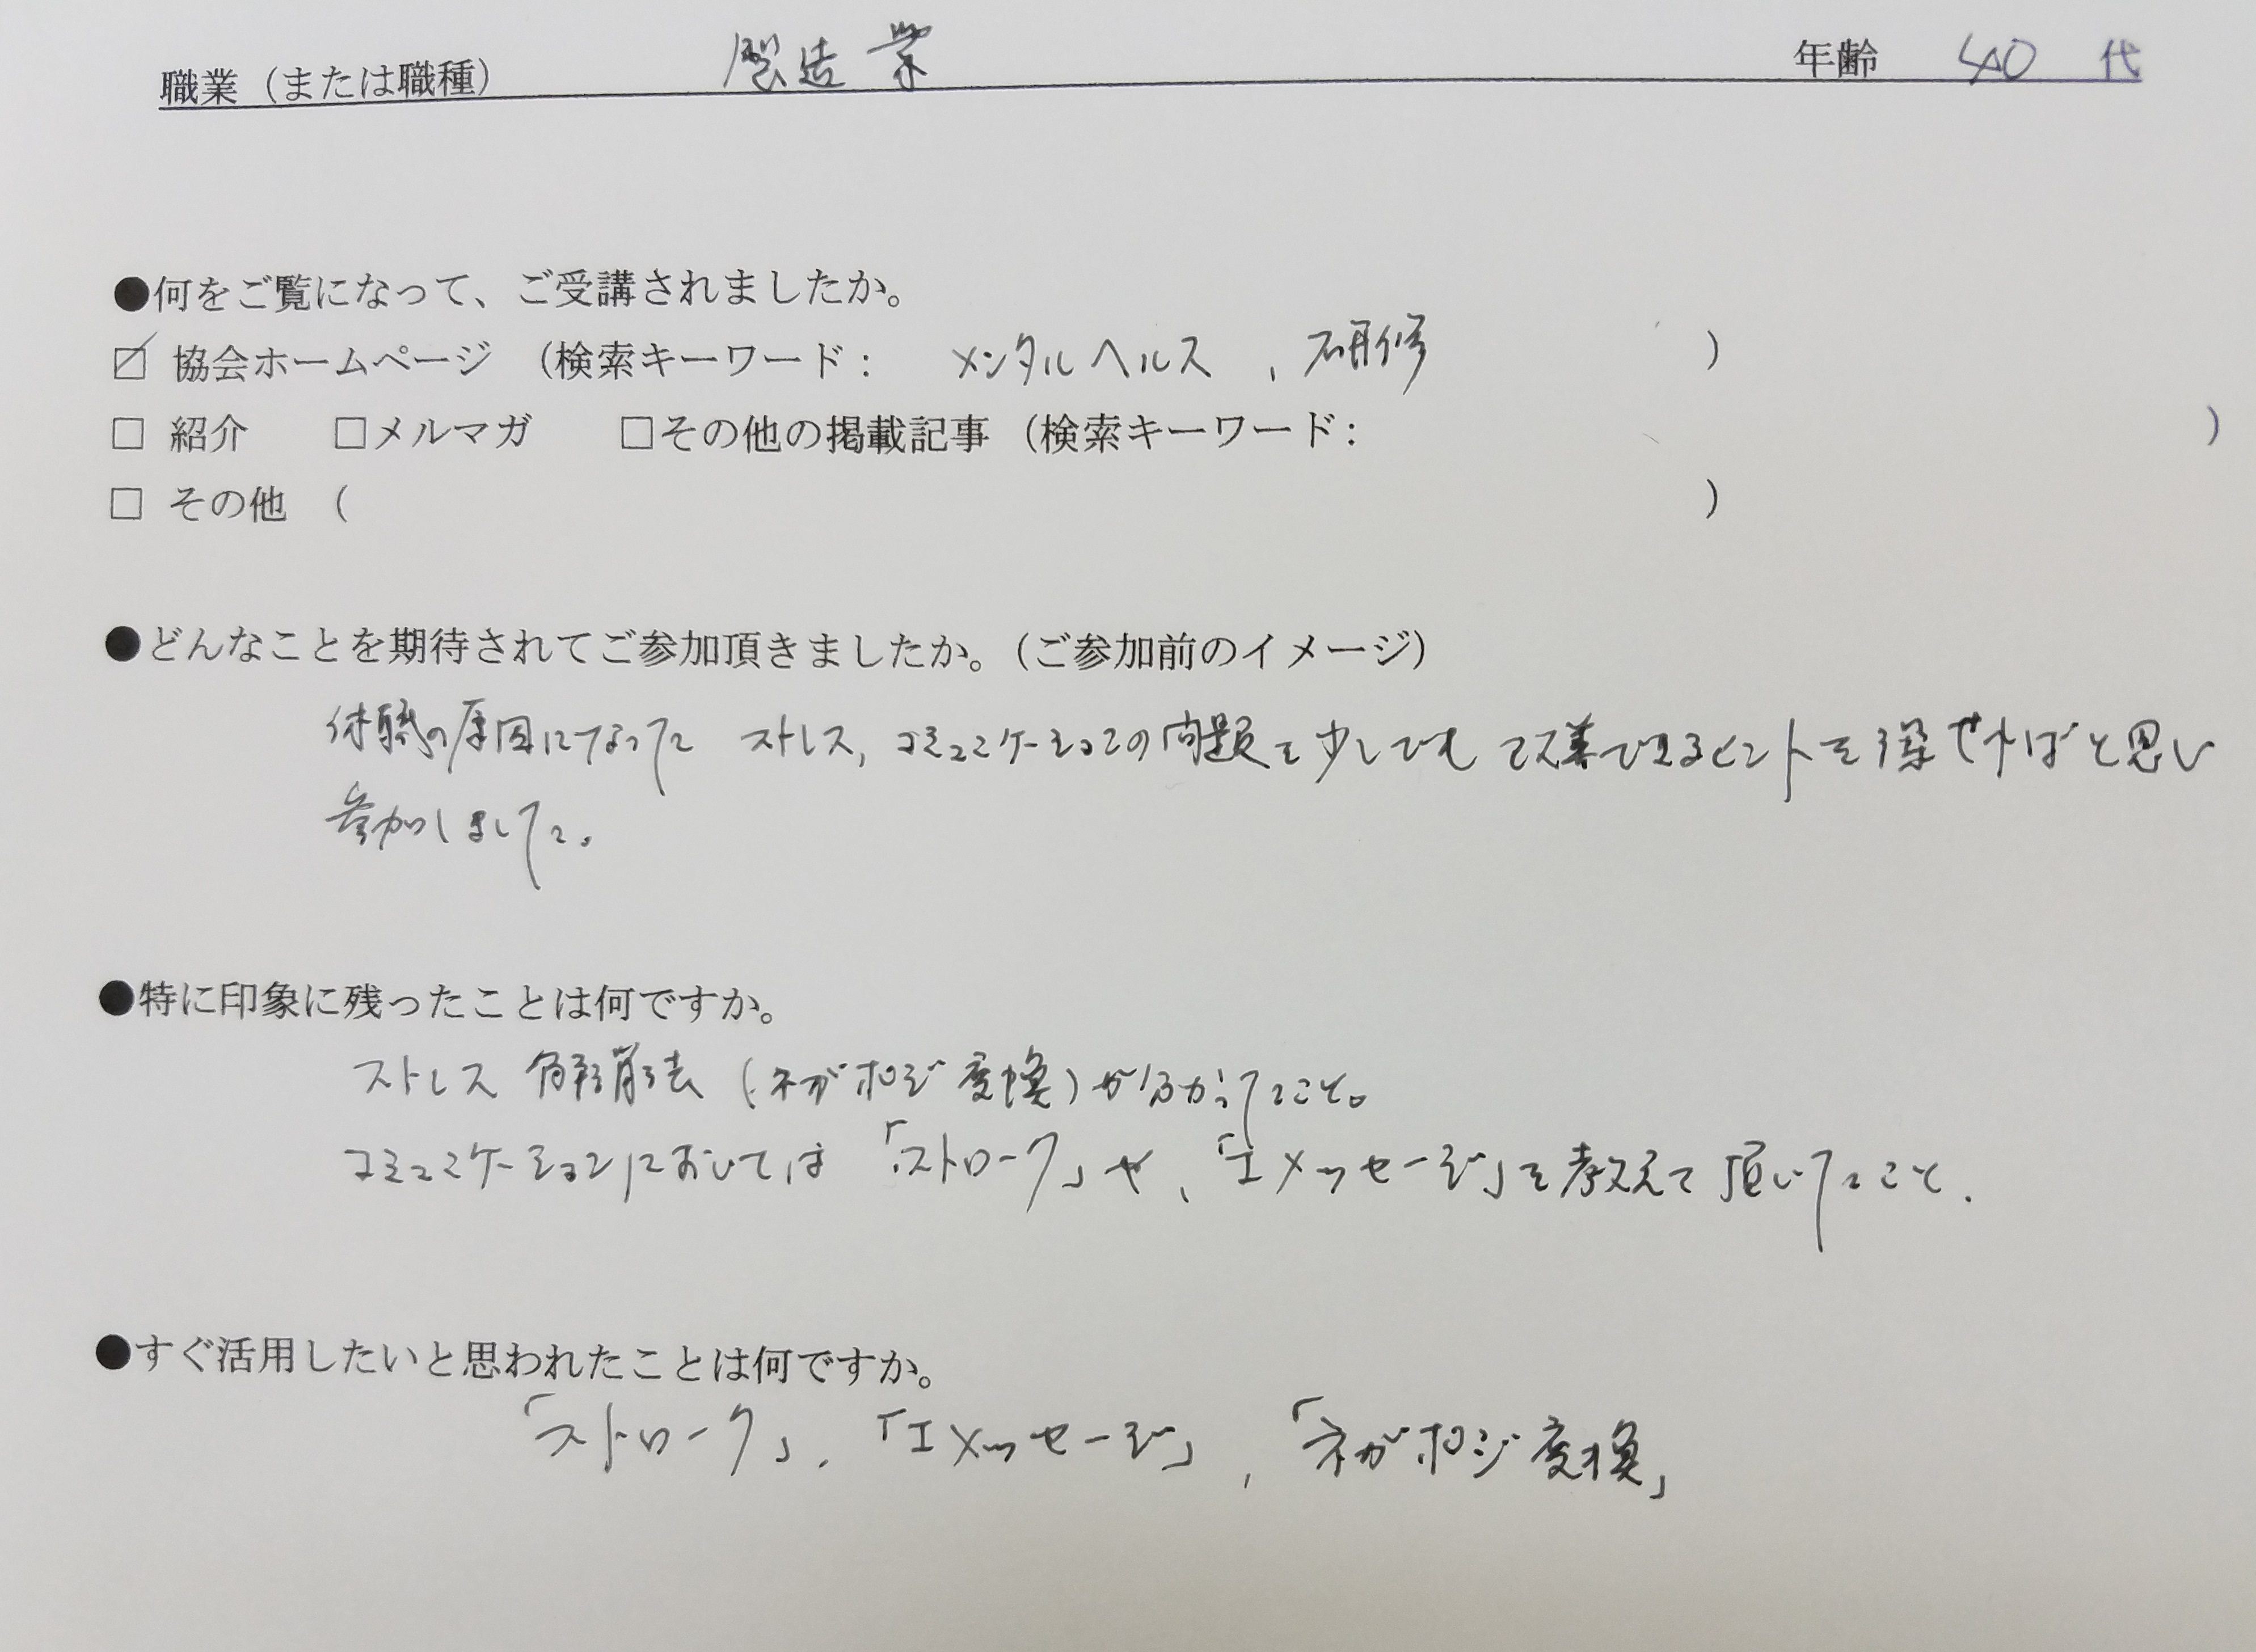 職業（または職種） 製造業 年齢 40 代
●何をご覧になって、ご受講されましたか。
☑ 協会ホームページ （検索キーワード： メンタルヘルス、研修 ）
□ 紹介 □メルマガ □その他の掲載記事（検索キーワード： ）
□ その他 （ ）
●どんなことを期待されてご参加頂きましたか。（ご参加前のイメージ）
休職の原因になった ストレス、コミュニケーションの問題を少しでも改善できるヒントを探せればと思い
参加しました。
●特に印象に残ったことは何ですか。
ストレス解消法（ネガポジ変換）が分かったこと。
コミュニケーションにおいては「ストローク」や、「Iメッセージ」を教えて頂いたこと.
●すぐ活用したいと思われたことは何ですか。
「ストローク」、「Iメッセージ」、「ネガポジ変換」